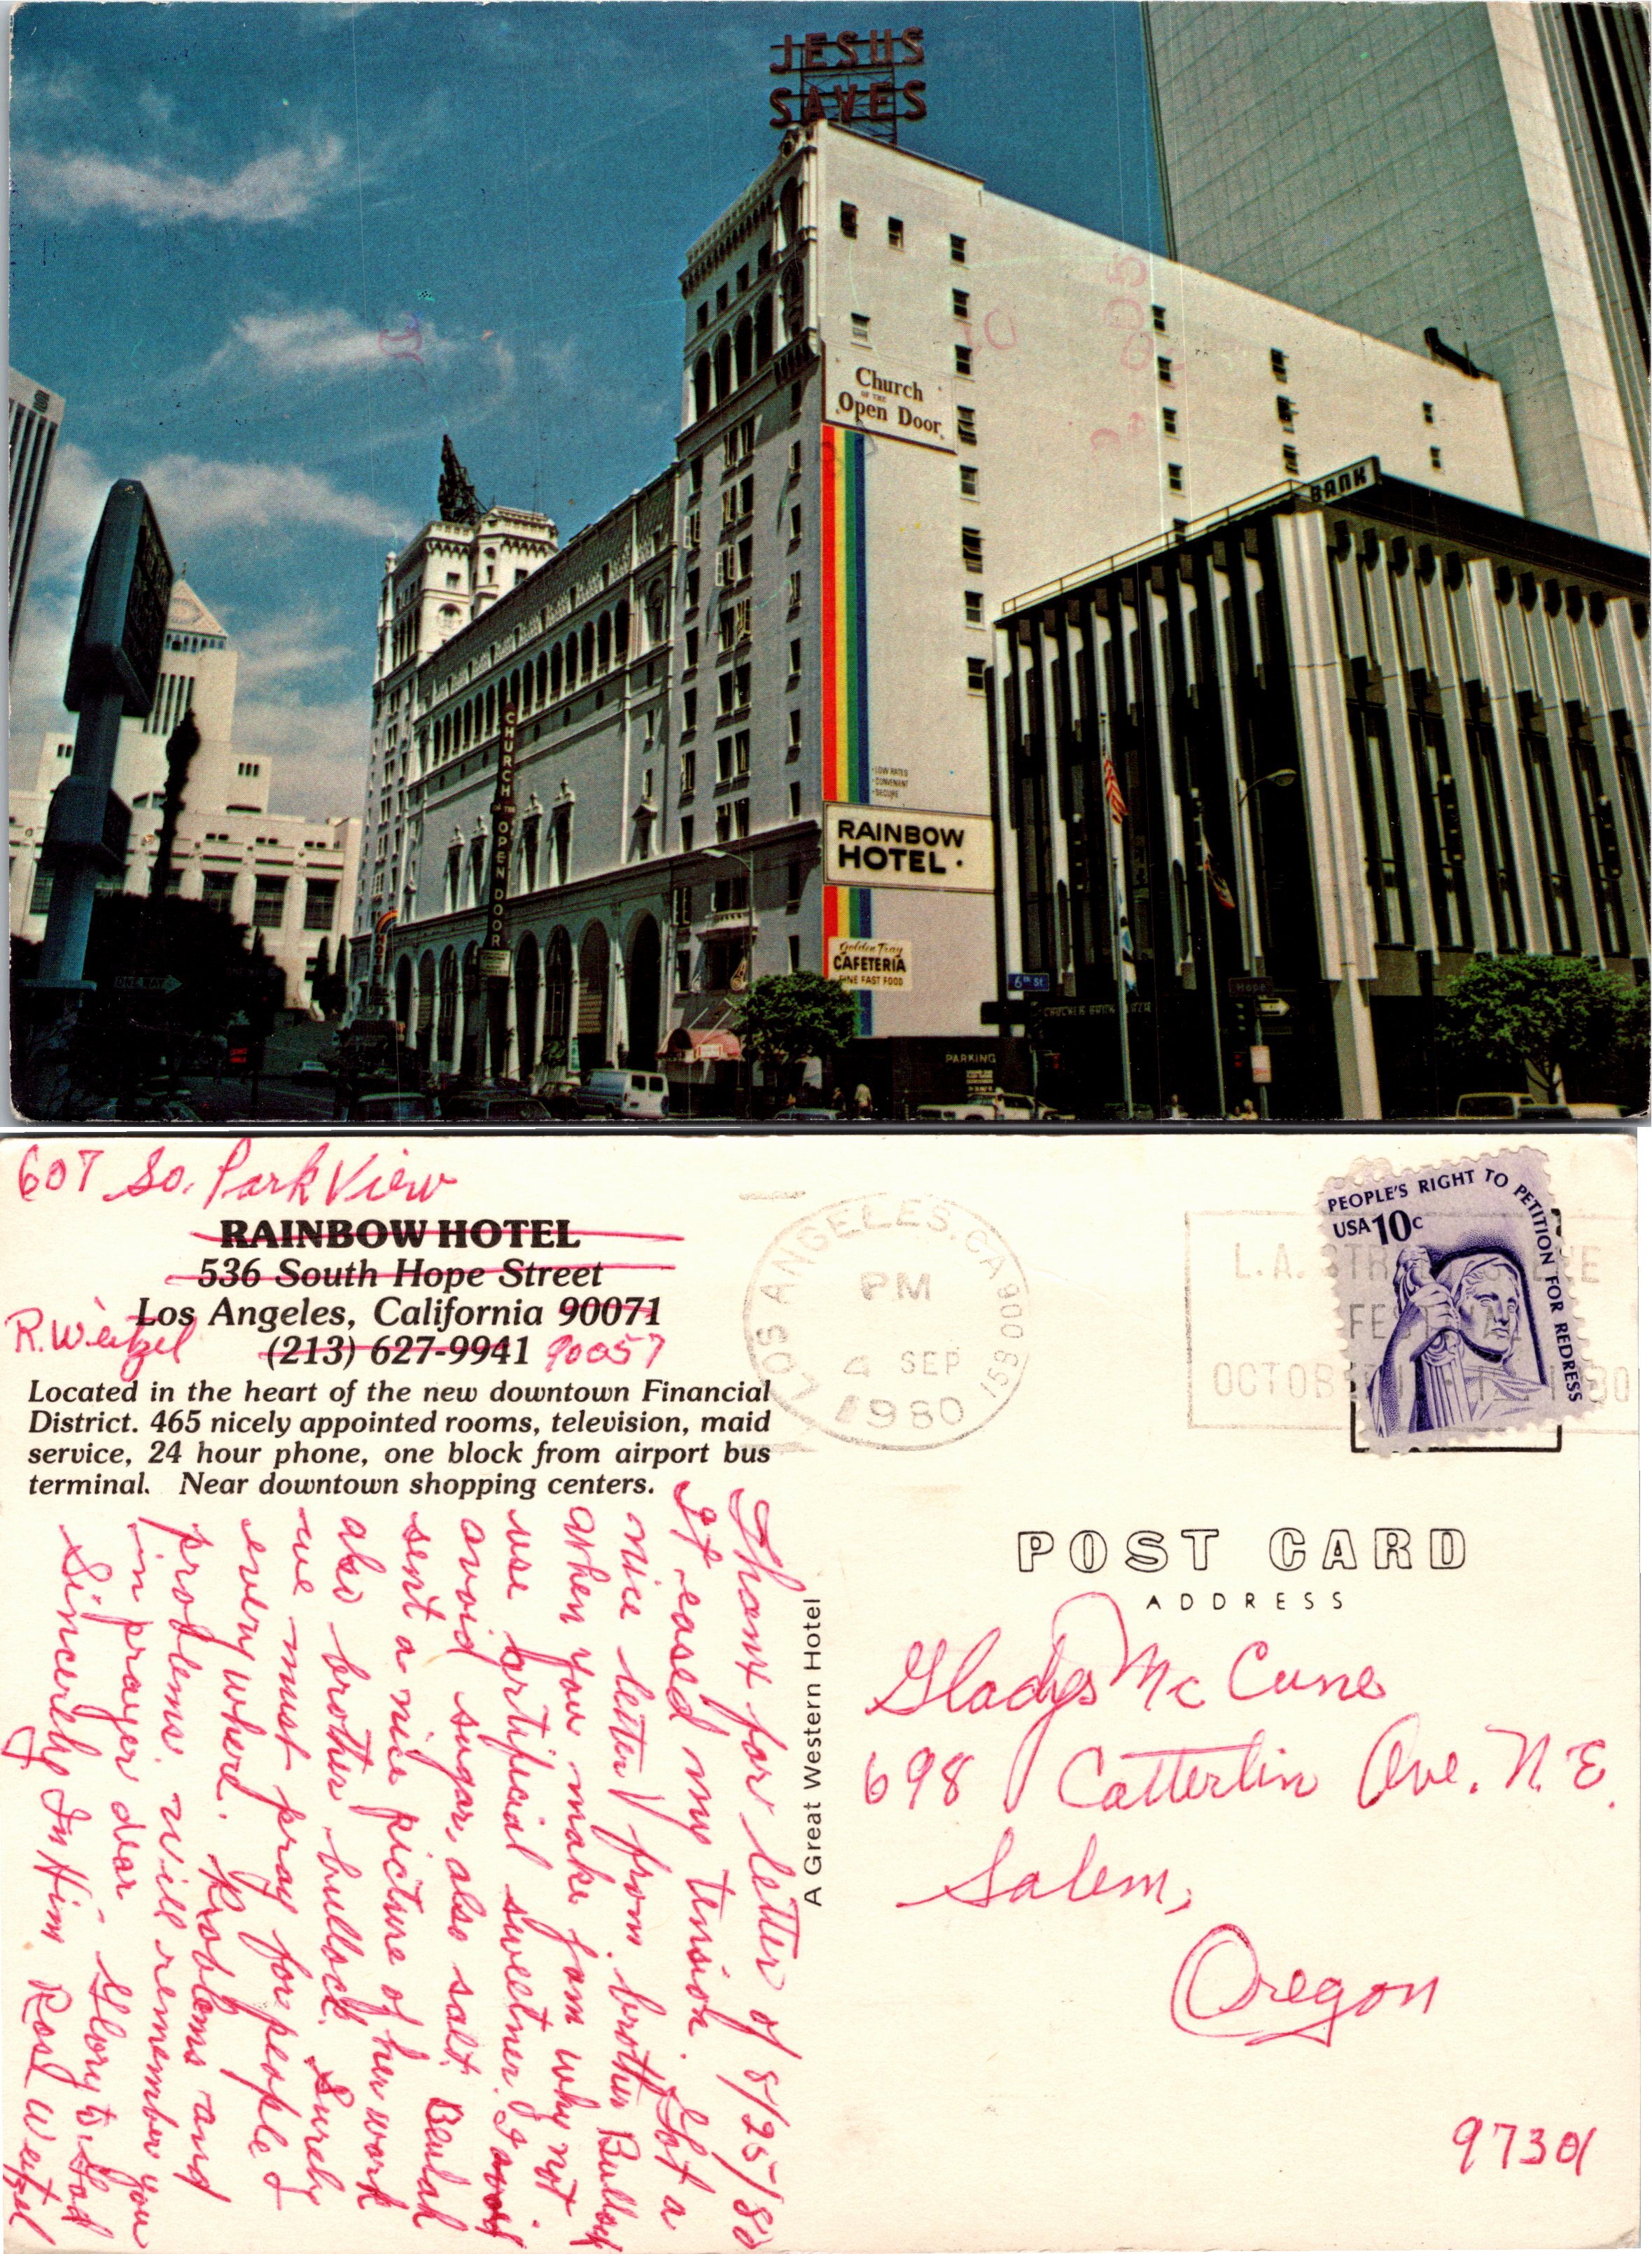 JESUS
SAVES
Church
OF THE
Open Door
BANK
CHURCH
OF THE
OPEN DOOR
• LOW RATES
• CONVENIENT
• SECURE
RAINBOW
HOTEL
Golden Tray
CAFETERIA
FINE FAST FOOD
ONE WAY
6th St
Hope
PARKING
607 So. Park View
RAINBOW HOTEL
536 South Hope Street
Los Angeles, California 90071
R. Weitzel
(213) 627-9941 90057
Located in the heart of the new downtown Financial
District. 465 nicely appointed rooms, television, maid
service, 24 hour phone, one block from airport bus
terminal. Near downtown shopping centers.
Thanx for letter of 8/25/80
It eased my tension. Got a
nice letter from brother Bullock
When you make jam why not
use artificial sweetner. I avoid
avoid sugar, also salt. Beulah
sent a nice picture of her work
also brother bullock. Surely
we must pray for people &
every where. Problems and
problems. will remember you
in prayer dear - Glory to God
Sincerely In Him Rose Weitzel
A Great Western Hotel
LOS ANGELES, CA 900
PM
4 SEP
1980
L.A. STR
FESTIVAL
OCTOBER
PEOPLE'S RIGHT TO PETITION FOR REDRESS
USA 10c
POST CARD
ADDRESS
Gladys McCune
698 Catterlin Ave. N.E.
Salem,
Oregon
97301